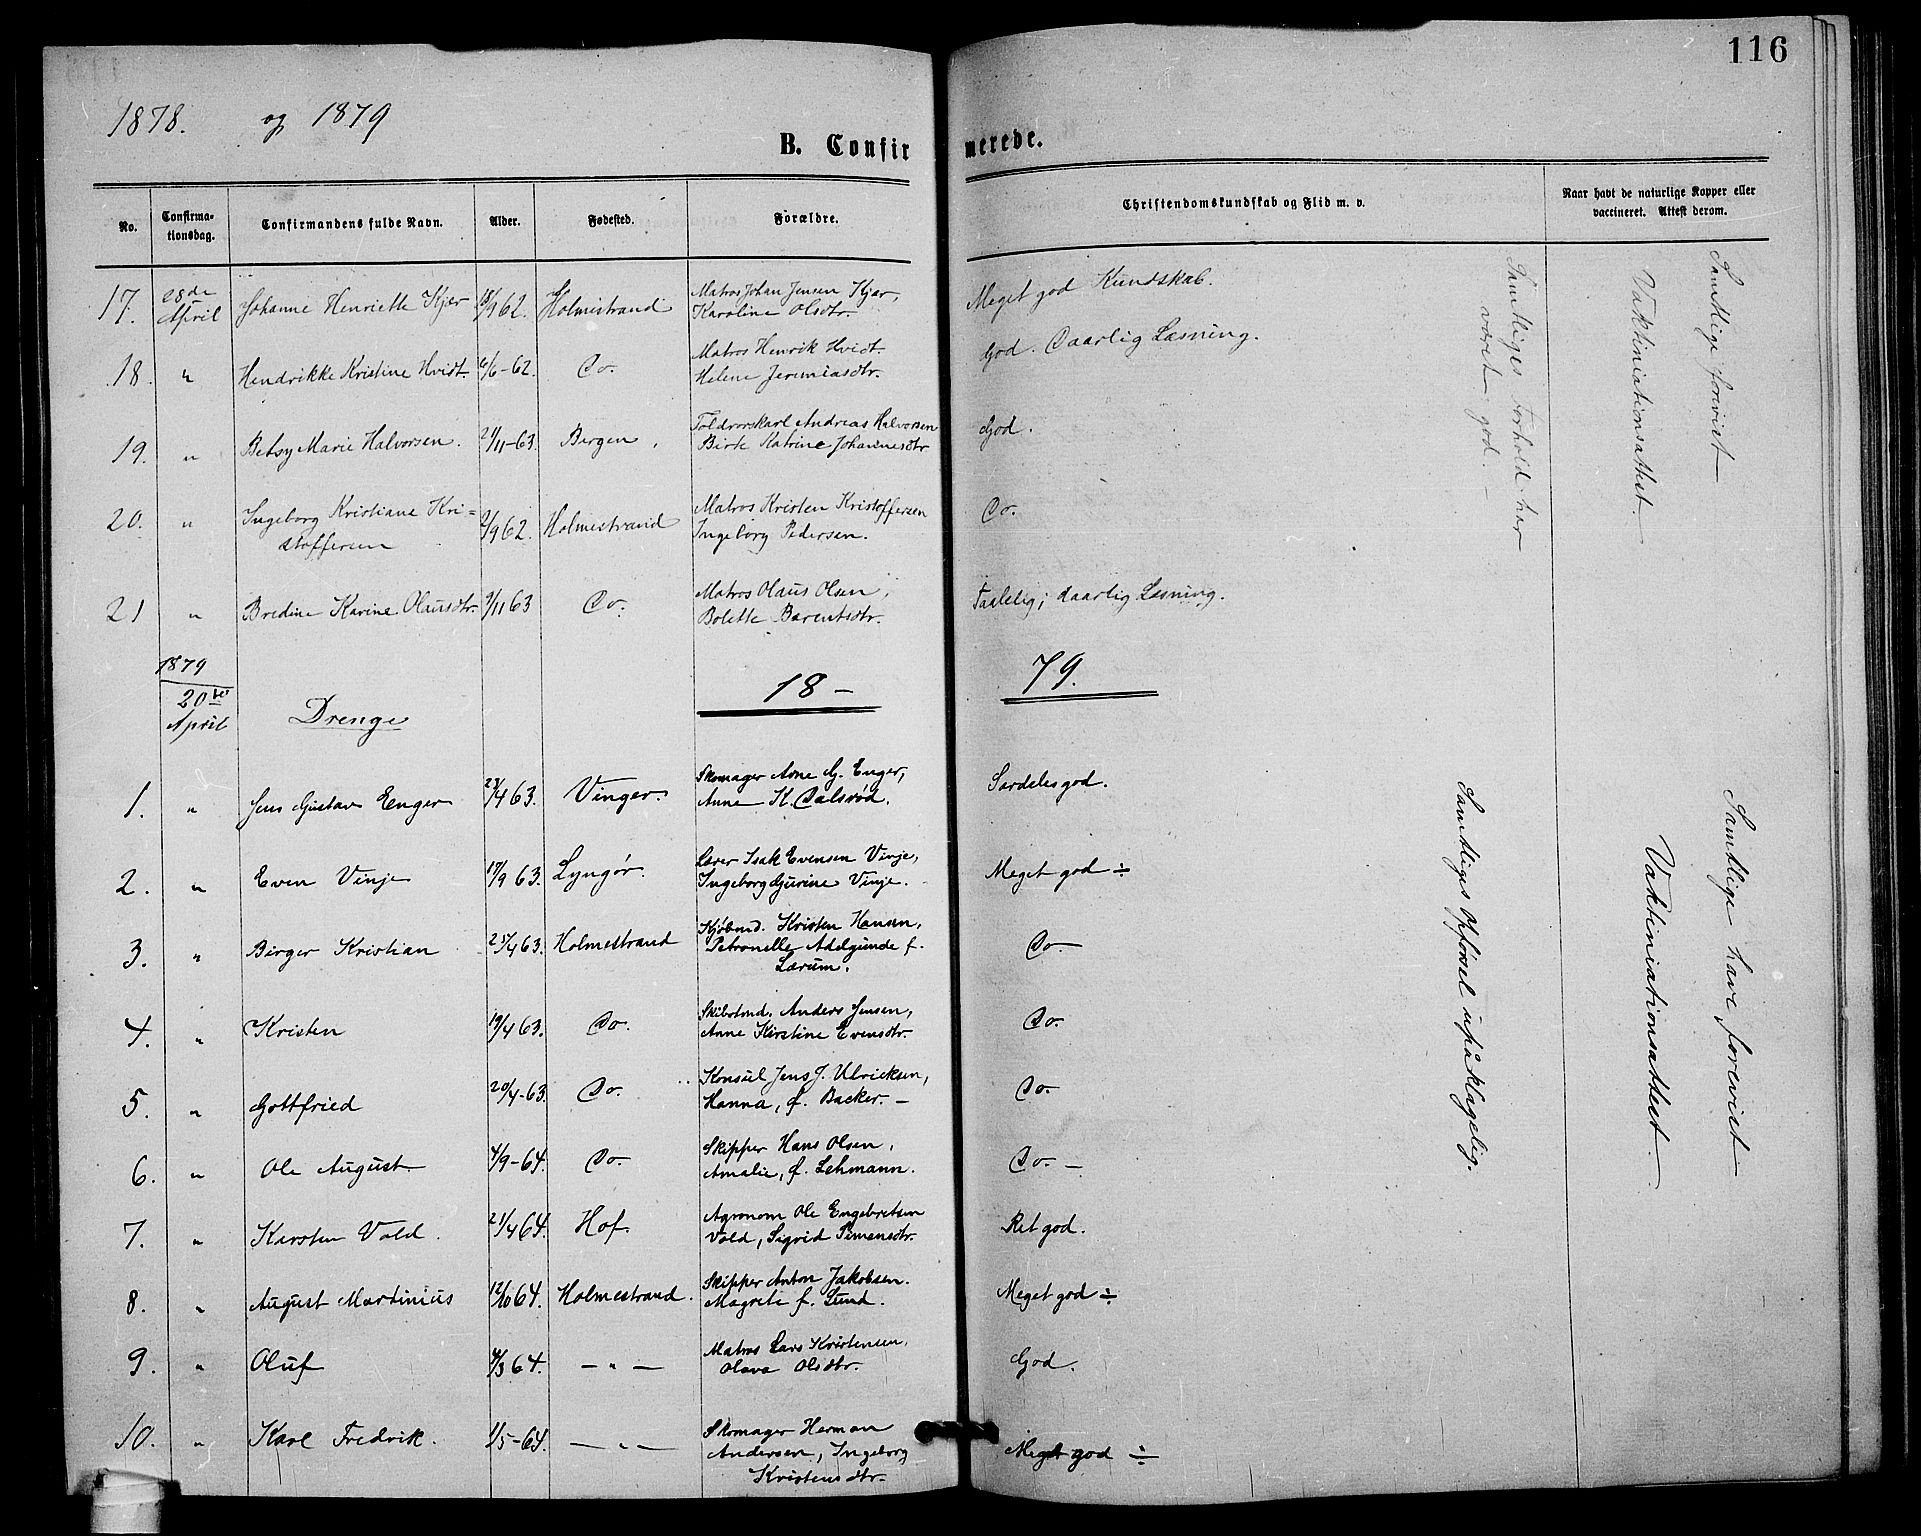 116
1878. og 1879
B. Confirmerede.
No. Confirmationsdag. Confirmandens fulde Navn. Alder. Fødested. Forældre. Christendomskundskab og Flid m. v. Naar havt de naturlige Kopper eller vaccineret. Attest derom.
17. 28de April Johanne Henriette Kjær 18/9 62. Holmestrand Matros Johan Jensen Kjær, Karoline Olsdtr. Meget god Kundskab.
18. " Hendrikke Kristine Hvidt. 6/6-62. Do. Matros Henrik Hvidt. Helene Jeremiasdtr. God. Daarlig Læsning.
19. " Betsy Marie Halvorsen. 21/11-63. Bergen. Toldrorskarl Andreas Halvorsen Birte Katrine Johannesdtr God.
20. " Ingeborg Kristiane Kristoffersen 2/9 62. Holmestrand Matros Kristen Kristoffersen Ingeborg Pedersen. Do.
21 " Bredine Karine Olausdtr. 9/11 63 Do. Matros Olaus Olsen, Bolette Barentsdtr. Taalelig; daarlig Læsning.
Samtliges Forhold har været god. –
Samtlige forevist Vaktiniationsattest.
1879
20de April Drenge 18 – 79.
1. " Jens Gustav Enger 23/4 63. Vinger. Skomager Arne G. Enger, Anne K. Dalsrød. Særdeles god.
2. " Even Vinje 17/9 63. Lyngør. Lærer Isak Evensen Vinje, Ingeborg Gurine Vinje. Meget god ÷
3. " Birger Kristian 25/4 63. Holmestrand Kjøbmd. Kristen Hansen, Petronelle Adelgunde f. Lærum. Do –
4. " Kristen 19/4 63. Do. Skibstmd. Anders Jensen, Anne Kirstine Evensdtr. Do.
5. " Gottfried 20/4-63. Do. Konsul Jens J. Ulricksen, Hanna, f. Backer. – Do.
6. " Ole August 4/9-64. Do. Skipper Hans Olsen, Amalie, f. Lehmann. Do. –
7. " Karsten Vold. 21/4 64. Hof. Agronom Ole Engebretsen Vold, Sigrid Simensdtr. Ret god.
8. " August Martinius 12/10 64. Holmestrand. Skipper Anton Jakobsen. Magrete f. Lund. Meget god ÷
9. " Oluf 4/3 64. – " – Matros Lars Kristensen, Olava Olsdtr. God.
10. " Karl Fredrik. 1/5-64. – " – Skomager Herman Andersen, Ingeborg Kristensdtr. Meget god ÷
Samtliges Opførsel upåklagelig.
Samtlige have forevist Vaktiniationsattest.